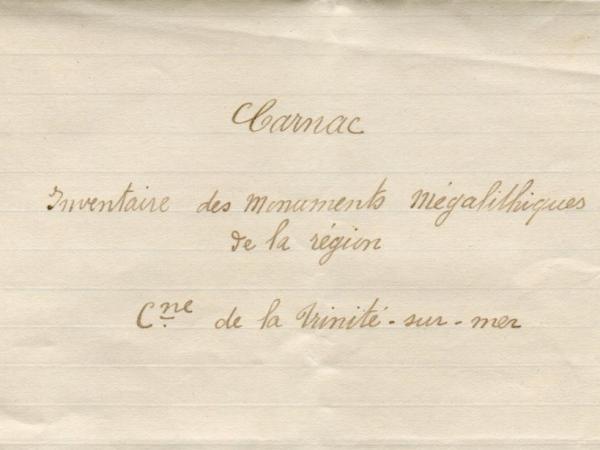 Carnac
Inventaire des Monuments Mégalithiques
de la région
Cne de la Trinité-sur-mer